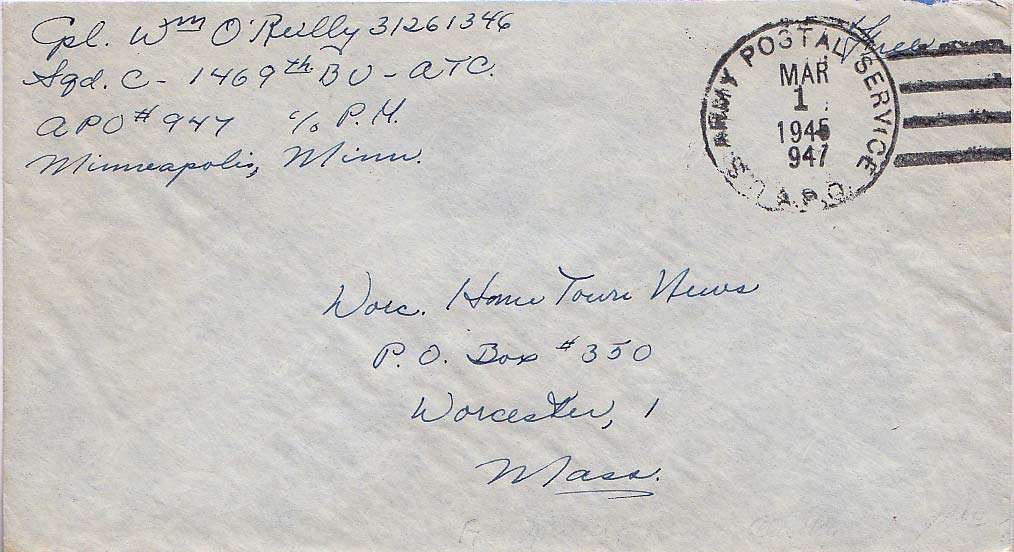 Cpl. Wm O'Reilly 31261346
Sqd. C - 1469th BU - ATC.
APO # 947 c/o P.M.
Minneapolis, Minn.
Free
U.S. ARMY POSTAL SERVICE
MAR
1
1945
947
A.P.O.
Worc. Home Town News
P.O. Box #350
Worcester, 1
Mass.